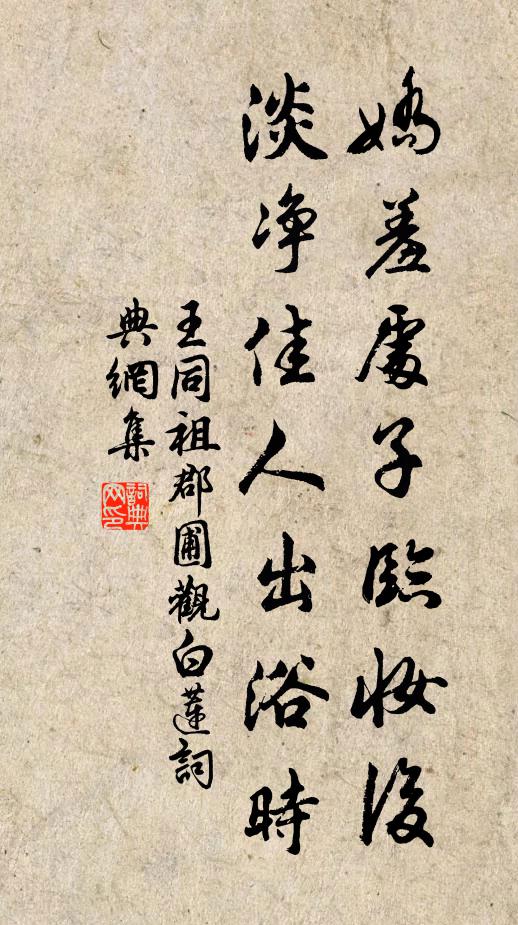 嬌羞處子臨妝後
淡淨佳人出浴時
王同祖郡圃觀白蓮詞
典網集
詞典網印